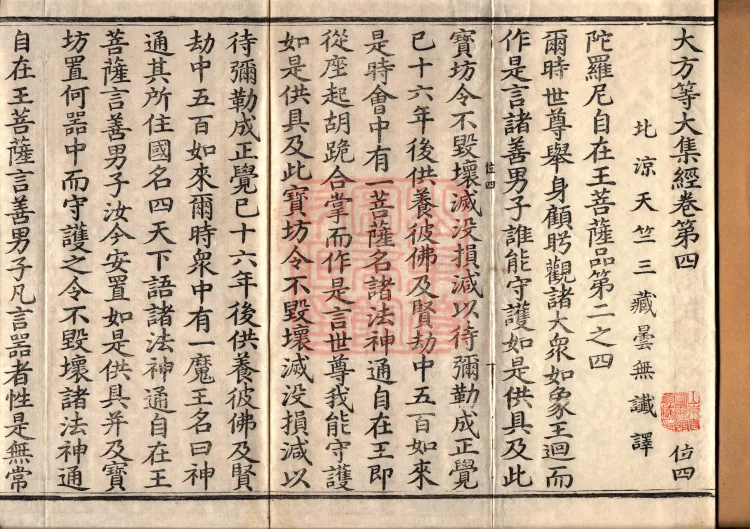 大方等大集經卷第四
位四
北涼天竺三藏曇無讖譯
陀羅尼自在王菩薩品第二之四
爾時世尊舉身顧眄觀諸大衆如象王迴而
作是言諸善男子誰能守護如是供具及此
寶坊令不毀壞滅没損減以待彌勒成正覺
位四
已十六年後供養彼佛及賢劫中五百如來
是時會中有一菩薩名諸法神通自在王即
從座起胡跪合掌而作是言世尊我能守護
如是供具及此寶坊令不毀壞滅没損減以
待彌勒成正覺已十六年後供養彼佛及賢
劫中五百如來爾時衆中有一魔王名曰神
通其所住國名四天下語諸法神通自在王
菩薩言善男子汝今安置如是供具并及寶
坊置何器中而守護之令不毀壞諸法神通
自在王菩薩言善男子凡言器者性是無常